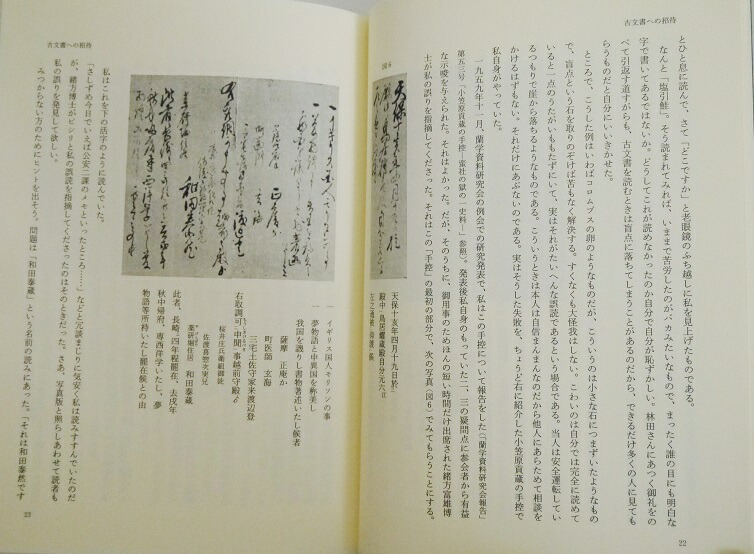 古文書への招待
とひと息に読んで、さて「どこですか」と老眼鏡のふち越しに私を見上げたものである。
なんと「塩引鮭」。そう読まれてみれば、いままで苦労したのがバカみたいなもので、まったく誰の目にも明白な
字で書いてあるではないか。どうしてこれが読めなかったのか自分で自分が恥ずかしい。林田さんにあつく御礼をの
べて引返す道すがらも、古文書を読むときは盲点に落ちてしまうことがあるのだから、できるだけ多くの人に見ても
らうものだと自分にいいきかせた。
ところで、こうした例はいわばコロムブスの卵のようなものだが、こういうのは小さな石につまずいたようなもの
で、盲点という石を取りのぞけば苦もなく解決する。すくなくも大怪我はしない。こわいのは自分では完全に読めて
いると一点のうたがいももたずにいて、実はそれがたいへんな誤読であるという場合である。当人は安全運転してい
るつもりで崖から落ちるようなものである。こういうときは本人は自信まんまんなのだから他人にあらためて相談を
かけるはずもない。それだけにあぶないのである。実はそうした失敗を、ちょうど右に紹介した小笠原貢蔵の手控で
私自身がやっていた。
一九五九年十一月、蘭学資料研究会の例会での研究発表で、私はこの手控について報告をした(「蘭学資料研究会報告」
第五三号「小笠原貢蔵の手控・蛮社の獄の一史料―」参照)。発表後私自身のもっていた二、三の疑問点に参会者から有益
な示唆を与えられた。それはよかった。だが、そのうちに、御用事のためほんの短い時間だけ出席された緒方富雄博
士が私の誤りを指摘してくださった。それはこの「手控」の最初の部分で、次の写真(図6)でみてもらうことにする。
図6
天保十亥年四月十九日於
殿中 鳥居耀蔵殿自分元〆
22
古文書への招待
一 イギリス国人モリソンの事
夢物語と申異国を称美し
我国を譏りし書物著述いたし候者
薩摩 正庵か
町医師 玄海
三宅土佐守家来渡辺登
右取調可申聞、事越前守殿ゟ
佐渡真惣次実兄
桜井庄兵衛組御徒
薬研堀住居 和田泰蔵
此者、長崎ニ四年程罷在、去戌年
秋中帰府、専西洋学いたし、夢
物語等所持いたし罷在候との由
私はこれを下の活字のように読んでいた。
「さしずめ今日でいえば公安二課のメモといったところ……」などと冗談まじりに気安く私は読みすすんでいたのだ
が、緒方博士がピシリと私の誤読を指摘してくださったのはそのときだった。さあ、写真版と照らしあわせて読者も
私の誤りを発見して欲しい。
みつからない方のためにヒントを出そう。問題は「和田泰蔵」という名前の読みにあった。「それは和田泰然です
23